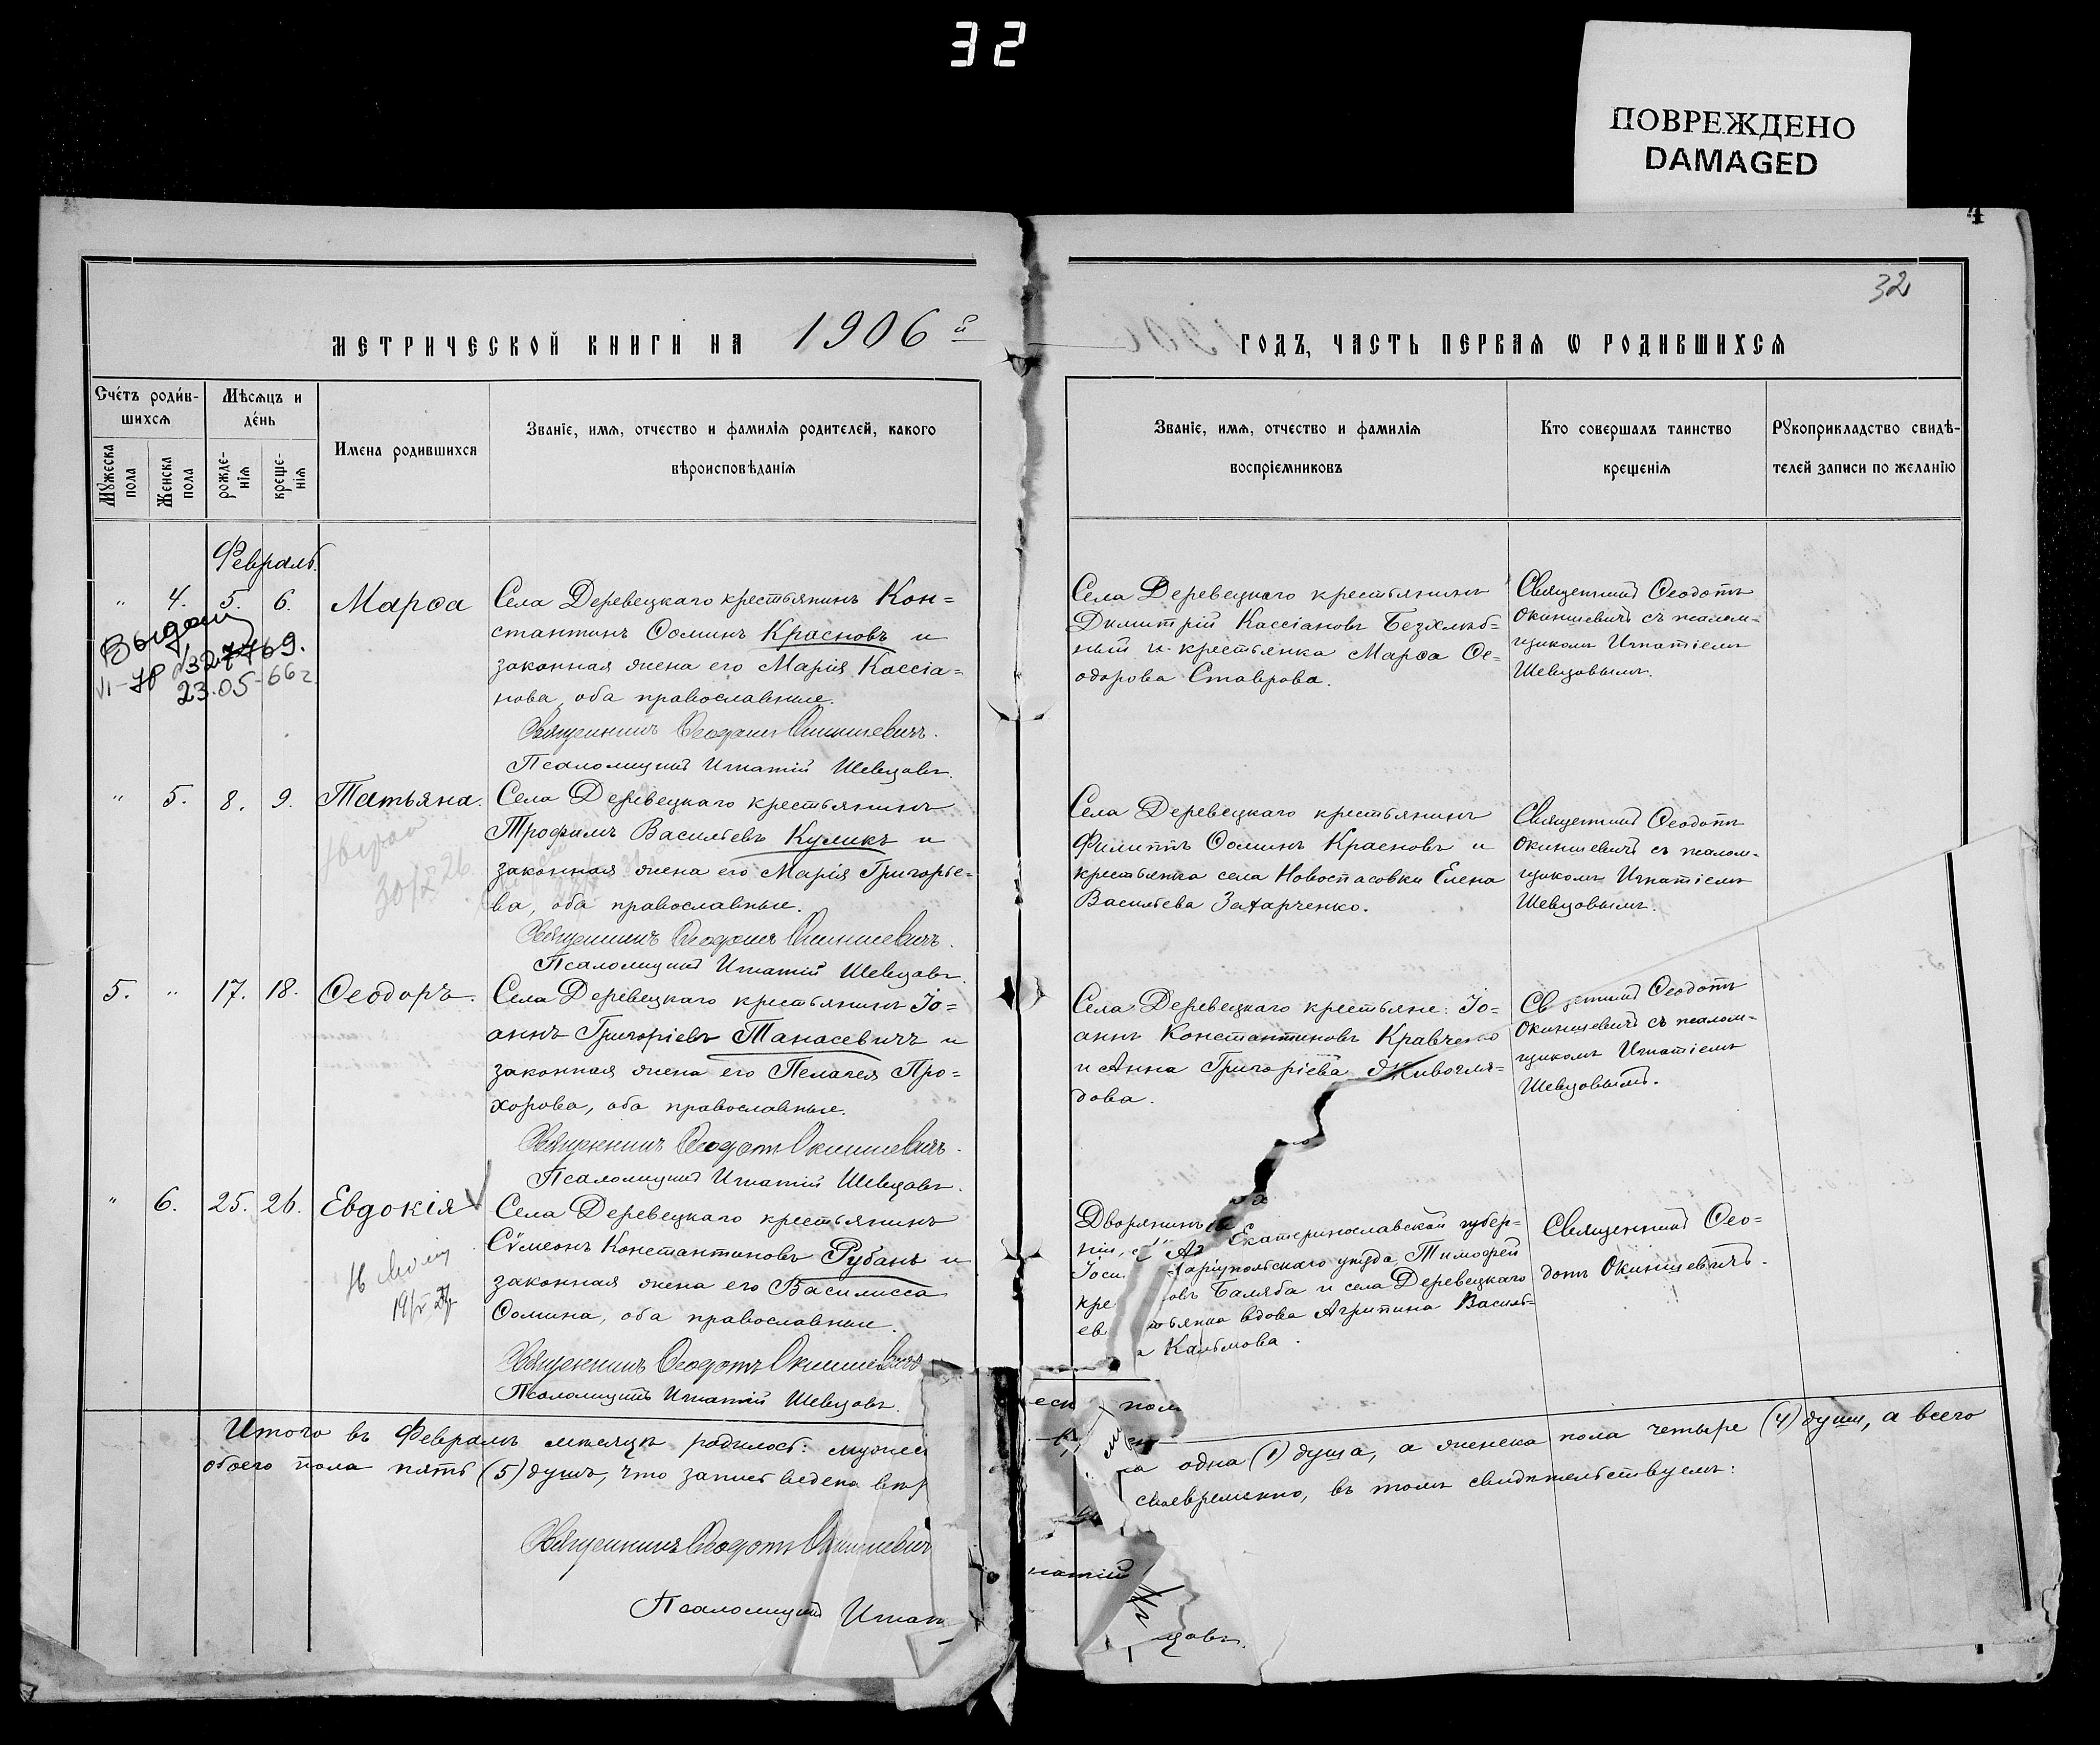 32
ПОВРЕЖДЕНО
DAMAGED
4
32
МЕТРИЧЕСКОЙ КНИГИ НА 1906 й
ГОДЪ, ЧАСТЬ ПЕРВАЯ Ѡ РОДИВШИХСЯ
Счетъ родившихся
Мѣсяцъ и день
Мужеска пола
Женска пола
рожденія
крещенія
Имена родившихся
Званіе, имя, отчество и фамилія родителей, какого
вѣроисповѣданія
Званіе, имя, отчество и фамилія
воспріемниковъ
Кто совершалъ таинство
крещенія
Рукоприкладство свидѣ-
телей записи по желанію
Февраль.
" 4. 5. 6. Марѳа
Села Деревецкаго крестьянинъ Кон=
стантинъ Ѳоминъ Красновъ и
законная жена его Марія Кассіа=
нова, оба православные.
Священникъ Ѳеодотъ Окиншевичъ.
Псаломщикъ Игнатій Шевцовъ.
23.05-66 г.
Села Деревецкаго крестьянинъ
Димитрій Кассіановъ Безхлѣб=
ный и крестьянка Марѳа Ѳе=
одорова Ставрова.
Священникъ Ѳеодотъ
Окиншевичъ съ псалом=
щикомъ Игнатіемъ
Шевцовымъ.
" 5. 8. 9. Татьяна.
Села Деревецкаго крестьянинъ
Трофимъ Васильевъ Куликъ и
законная жена его Марія Григорье=
ва, оба православные.
Священникъ Ѳеодотъ Окиншевичъ.
Псаломщикъ Игнатій Шевцовъ.
Села Деревецкаго крестьянинъ
Филиппъ Ѳоминъ Красновъ и
крестьянка села Новоспасовки Елена
Васильева Захарченко.
Священникъ Ѳеодотъ
Окиншевичъ съ псалом=
щикомъ Игнатіемъ
Шевцовымъ.
5. " 17. 18. Ѳеодоръ.
Села Деревецкаго крестьянинъ Іо=
аннъ Григоріевъ Танасевичъ и
законная жена его Пелагея Про=
хорова, оба православные.
Священникъ Ѳеодотъ Окиншевичъ.
Псаломщикъ Игнатій Шевцовъ.
Села Деревецкаго крестьяне: Іо=
аннъ Константиновъ Кравченко
и Анна Григоріева Живогля=
дова.
Ѳеодотъ
Окиншевичъ съ псалом=
щикомъ Игнатіемъ
Шевцовымъ.
" 6. 25. 26. Евдокія
Села Деревецкаго крестьянинъ
Сѵмеонъ Константиновъ Рубанъ и
законная жена его Василисса
Ѳомина, оба православные.
Священникъ Ѳеодотъ Окиншевичъ
Псаломщикъ Игнатій Шевцовъ.
Дворянинъ Екатеринославской губер=
ніи, аріупольскаго уѣзда, Тимофей
Іоси овъ Баляба и села Деревецкаго
кре ьянка вдова Агрипина Василь=
ев а Калымова.
Священникъ Ѳео=
дотъ Окиншевичъ.
Итого въ Февралѣ мѣсяцѣ родилось: мужес
па одна (1) душа, а женска пола четыре (4) души, а всего
обоего пола пять (5) душъ, что запись ведена вѣр
своевременно, въ томъ свидѣтельствуемъ:
Священникъ Ѳеодотъ Окиншевич
Псаломщикъ Игнат
натій
цовъ.